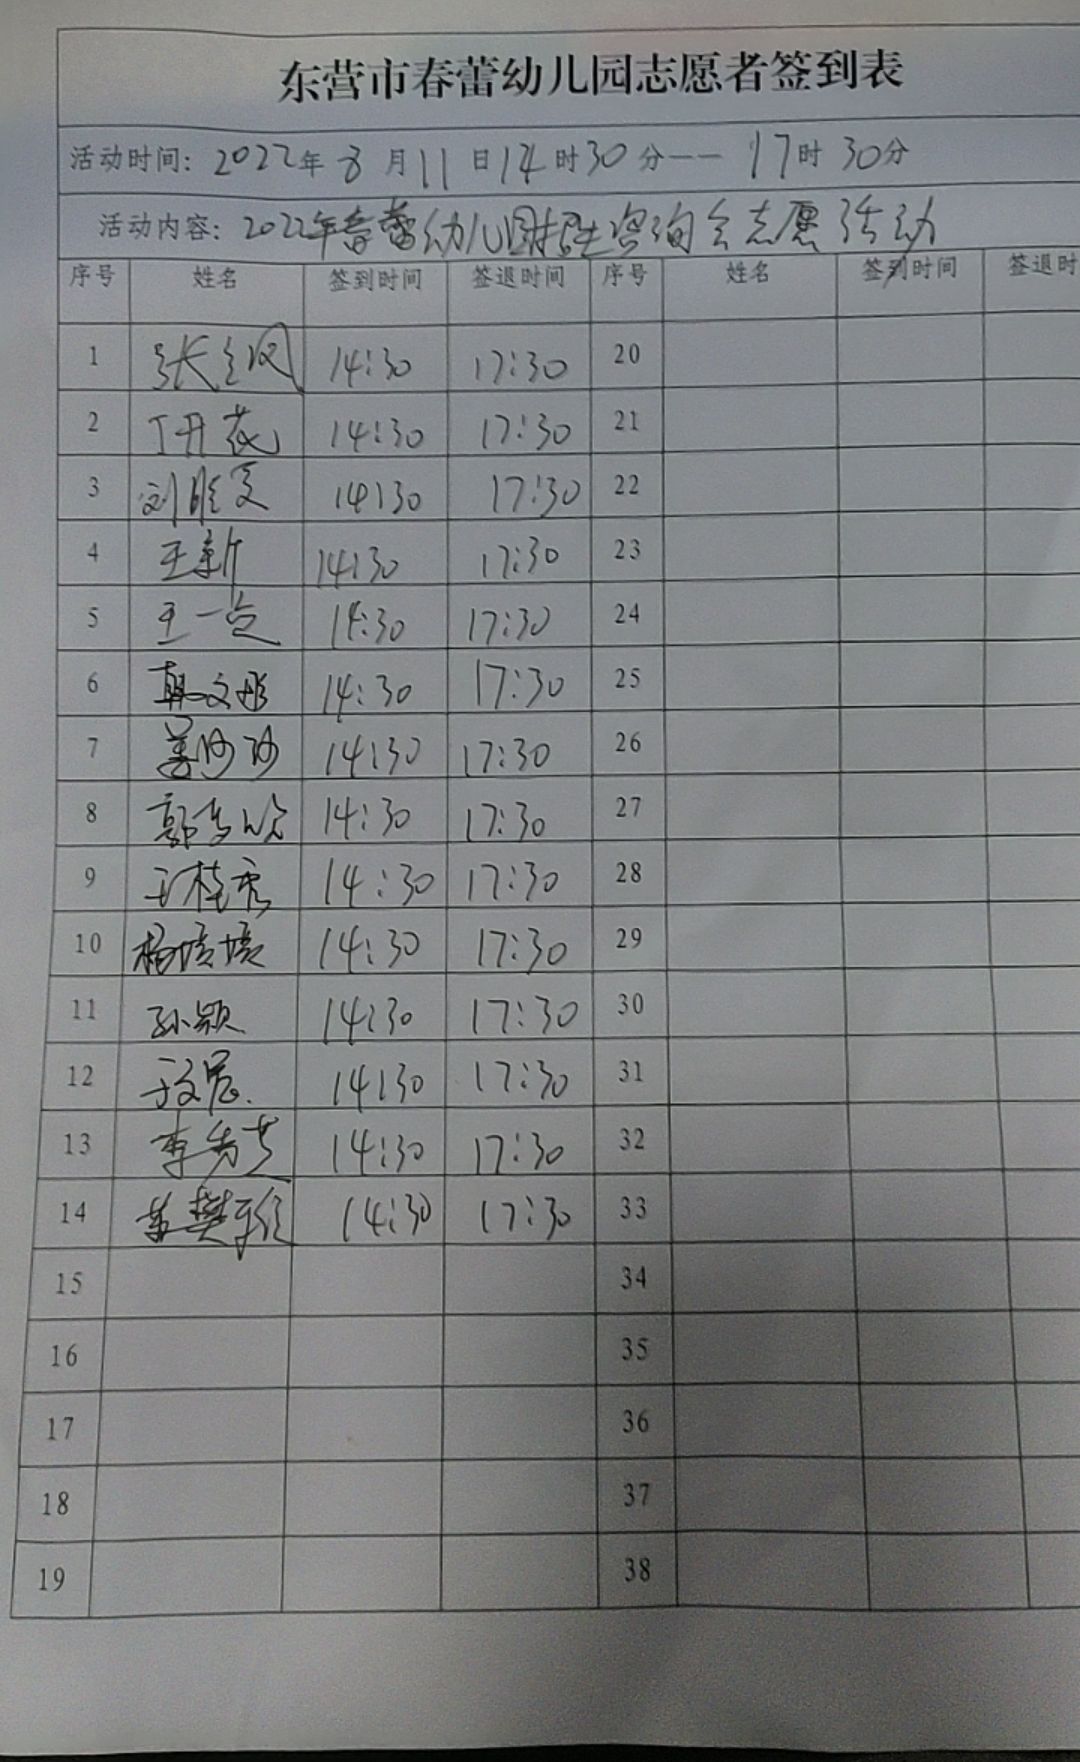 东营市春蕾幼儿园志愿者签到表
活动时间：2022年8月11日14时30分——17时30分
活动内容：2022年春蕾幼儿园招生咨询会志愿活动
序号 姓名 签到时间 签退时间 序号 姓名 签到时间 签退时
1 张 14:30 17:30 20
2 丁丹花 14:30 17:30 21
3 刘 14:30 17:30 22
4 王新 14:30 17:30 23
5 王一 14:30 17:30 24
6 韩文彤 14:30 17:30 25
7 姜沙沙 14:30 17:30 26
8 郭 14:30 17:30 27
9 王桂秀 14:30 17:30 28
10 杨培培 14:30 17:30 29
11 孙颖 14:30 17:30 30
12 于文 14:30 17:30 31
13 李秀芝 14:30 17:30 32
14 14:30 17:30 33
15 34
16 35
17 36
18 37
19 38